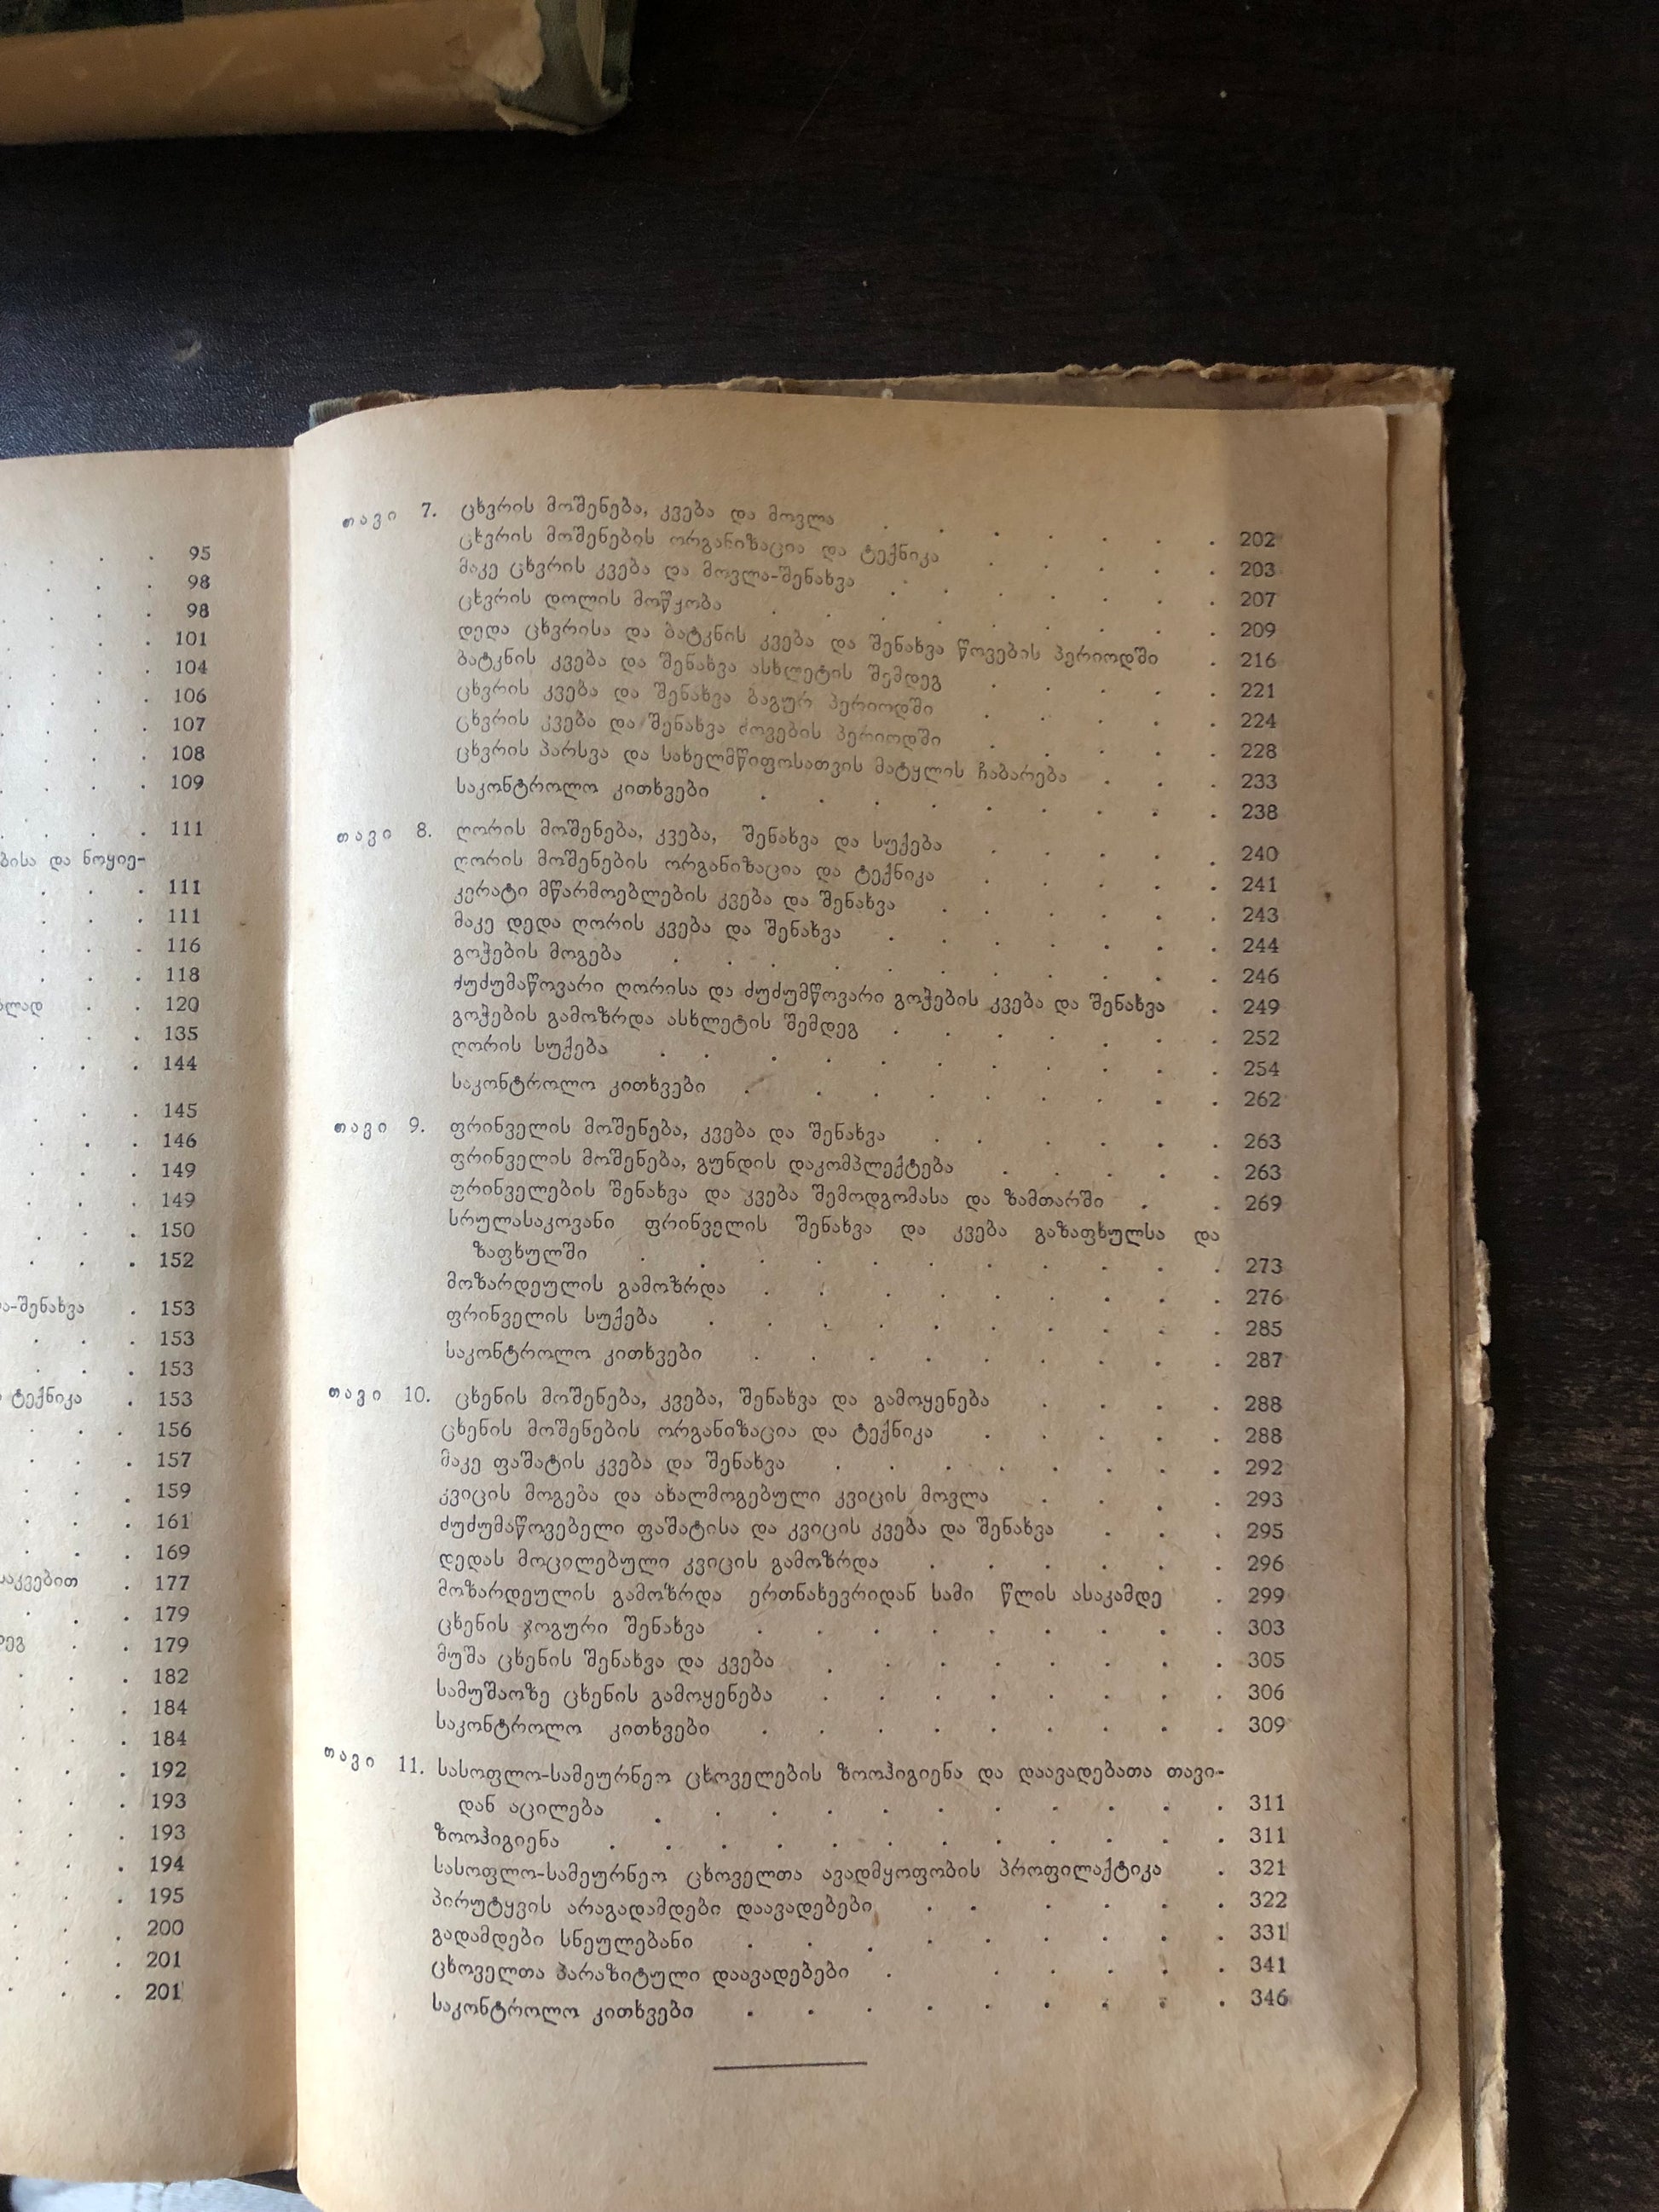 95
98
98
101
104
106
107
108
109
111
ბისა და ნოყიე-
111
111
116
118
120
135
144
145
146
149
149
150
152
ა-შენახვა . 153
153
153
ტექნიკა . 153
156
157
159
161
169
საკვებით . 177
179
179
182
184
184
192
193
193
194
195
200
201
201
თავი 7. ცხვრის მოშენება, კვება და მოვლა . . . . . . . 202
ცხვრის მოშენების ორგანიზაცია და ტექნიკა . . . . . 203
მაკე ცხვრის კვება და მოვლა-შენახვა . . . . . . 207
ცხვრის დოლის მოწყობა . . . . . . . . 209
დედა ცხვრისა და ბატკნის კვება და შენახვა წოვების პერიოდში . 216
ბატკნის კვება და შენახვა ასხლეტის შემდეგ . . . . . 221
ცხვრის კვება და შენახვა ბაგურ პერიოდში . . . . . 224
ცხვრის კვება და შენახვა ძოვების პერიოდში . . . . . 228
ცხვრის პარსვა და სახელმწიფოსათვის მატყლის ჩაბარება . . . 233
საკონტროლო კითხვები . . . . . . . . . 238
თავი 8. ღორის მოშენება, კვება, შენახვა და სუქება . . . . . 240
ღორის მოშენების ორგანიზაცია და ტექნიკა . . . . . 241
კერატი მწარმოებლების კვება და შენახვა . . . . . . 243
მაკე დედა ღორის კვება და შენახვა . . . . . . . 244
გოჭების მოგება . . . . . . . . . . 246
ძუძუმაწოვარი ღორისა და ძუძუმწოვარი გოჭების კვება და შენახვა . 249
გოჭების გამოზრდა ასხლეტის შემდეგ . . . . . . 252
ღორის სუქება . . . . . . . . . . 254
საკონტროლო კითხვები . . . . . . . . 262
თავი 9. ფრინველის მოშენება, კვება და შენახვა . . . . . . 263
ფრინველის მოშენება, გუნდის დაკომპლექტება . . . . . 263
ფრინველების შენახვა და კვება შემოდგომასა და ზამთარში . . 269
სრულასაკოვანი ფრინველის შენახვა და კვება გაზაფხულსა და
ზაფხულში . . . . . . . . . . . 273
მოზარდეულის გამოზრდა . . . . . . . . . 276
ფრინველის სუქება . . . . . . . . . . 285
საკონტროლო კითხვები . . . . . . . . . 287
თავი 10. ცხენის მოშენება, კვება, შენახვა და გამოყენება . . . . 288
ცხენის მოშენების ორგანიზაცია და ტექნიკა . . . . . 288
მაკე ფაშატის კვება და შენახვა . . . . . . . . 292
კვიცის მოგება და ახალმოგებული კვიცის მოვლა . . . . 293
ძუძუმაწოვებელი ფაშატისა და კვიცის კვება და შენახვა . . . 295
დედას მოცილებული კვიცის გამოზრდა . . . . . . 296
მოზარდეულის გამოზრდა ერთნახევრიდან სამი წლის ასაკამდე . 299
ცხენის ჯოგური შენახვა . . . . . . . . . 303
მუშა ცხენის შენახვა და კვება . . . . . . . . 305
სამუშაოზე ცხენის გამოყენება . . . . . . . . 306
საკონტროლო კითხვები . . . . . . . . . 309
თავი 11. სასოფლო-სამეურნეო ცხოველების ზოოჰიგიენა და დაავადებათა თავი-
დან აცილება . . . . . . . . . . . 311
ზოოჰიგიენა . . . . . . . . . . . . 311
სასოფლო-სამეურნეო ცხოველთა ავადმყოფობის პროფილაქტიკა . 321
პირუტყვის არაგადამდები დაავადებები . . . . . . 322
გადამდები სნეულებანი . . . . . . . . . 331
ცხოველთა პარაზიტული დაავადებები . . . . . . 341
საკონტროლო კითხვები . . . . . . . . . 346